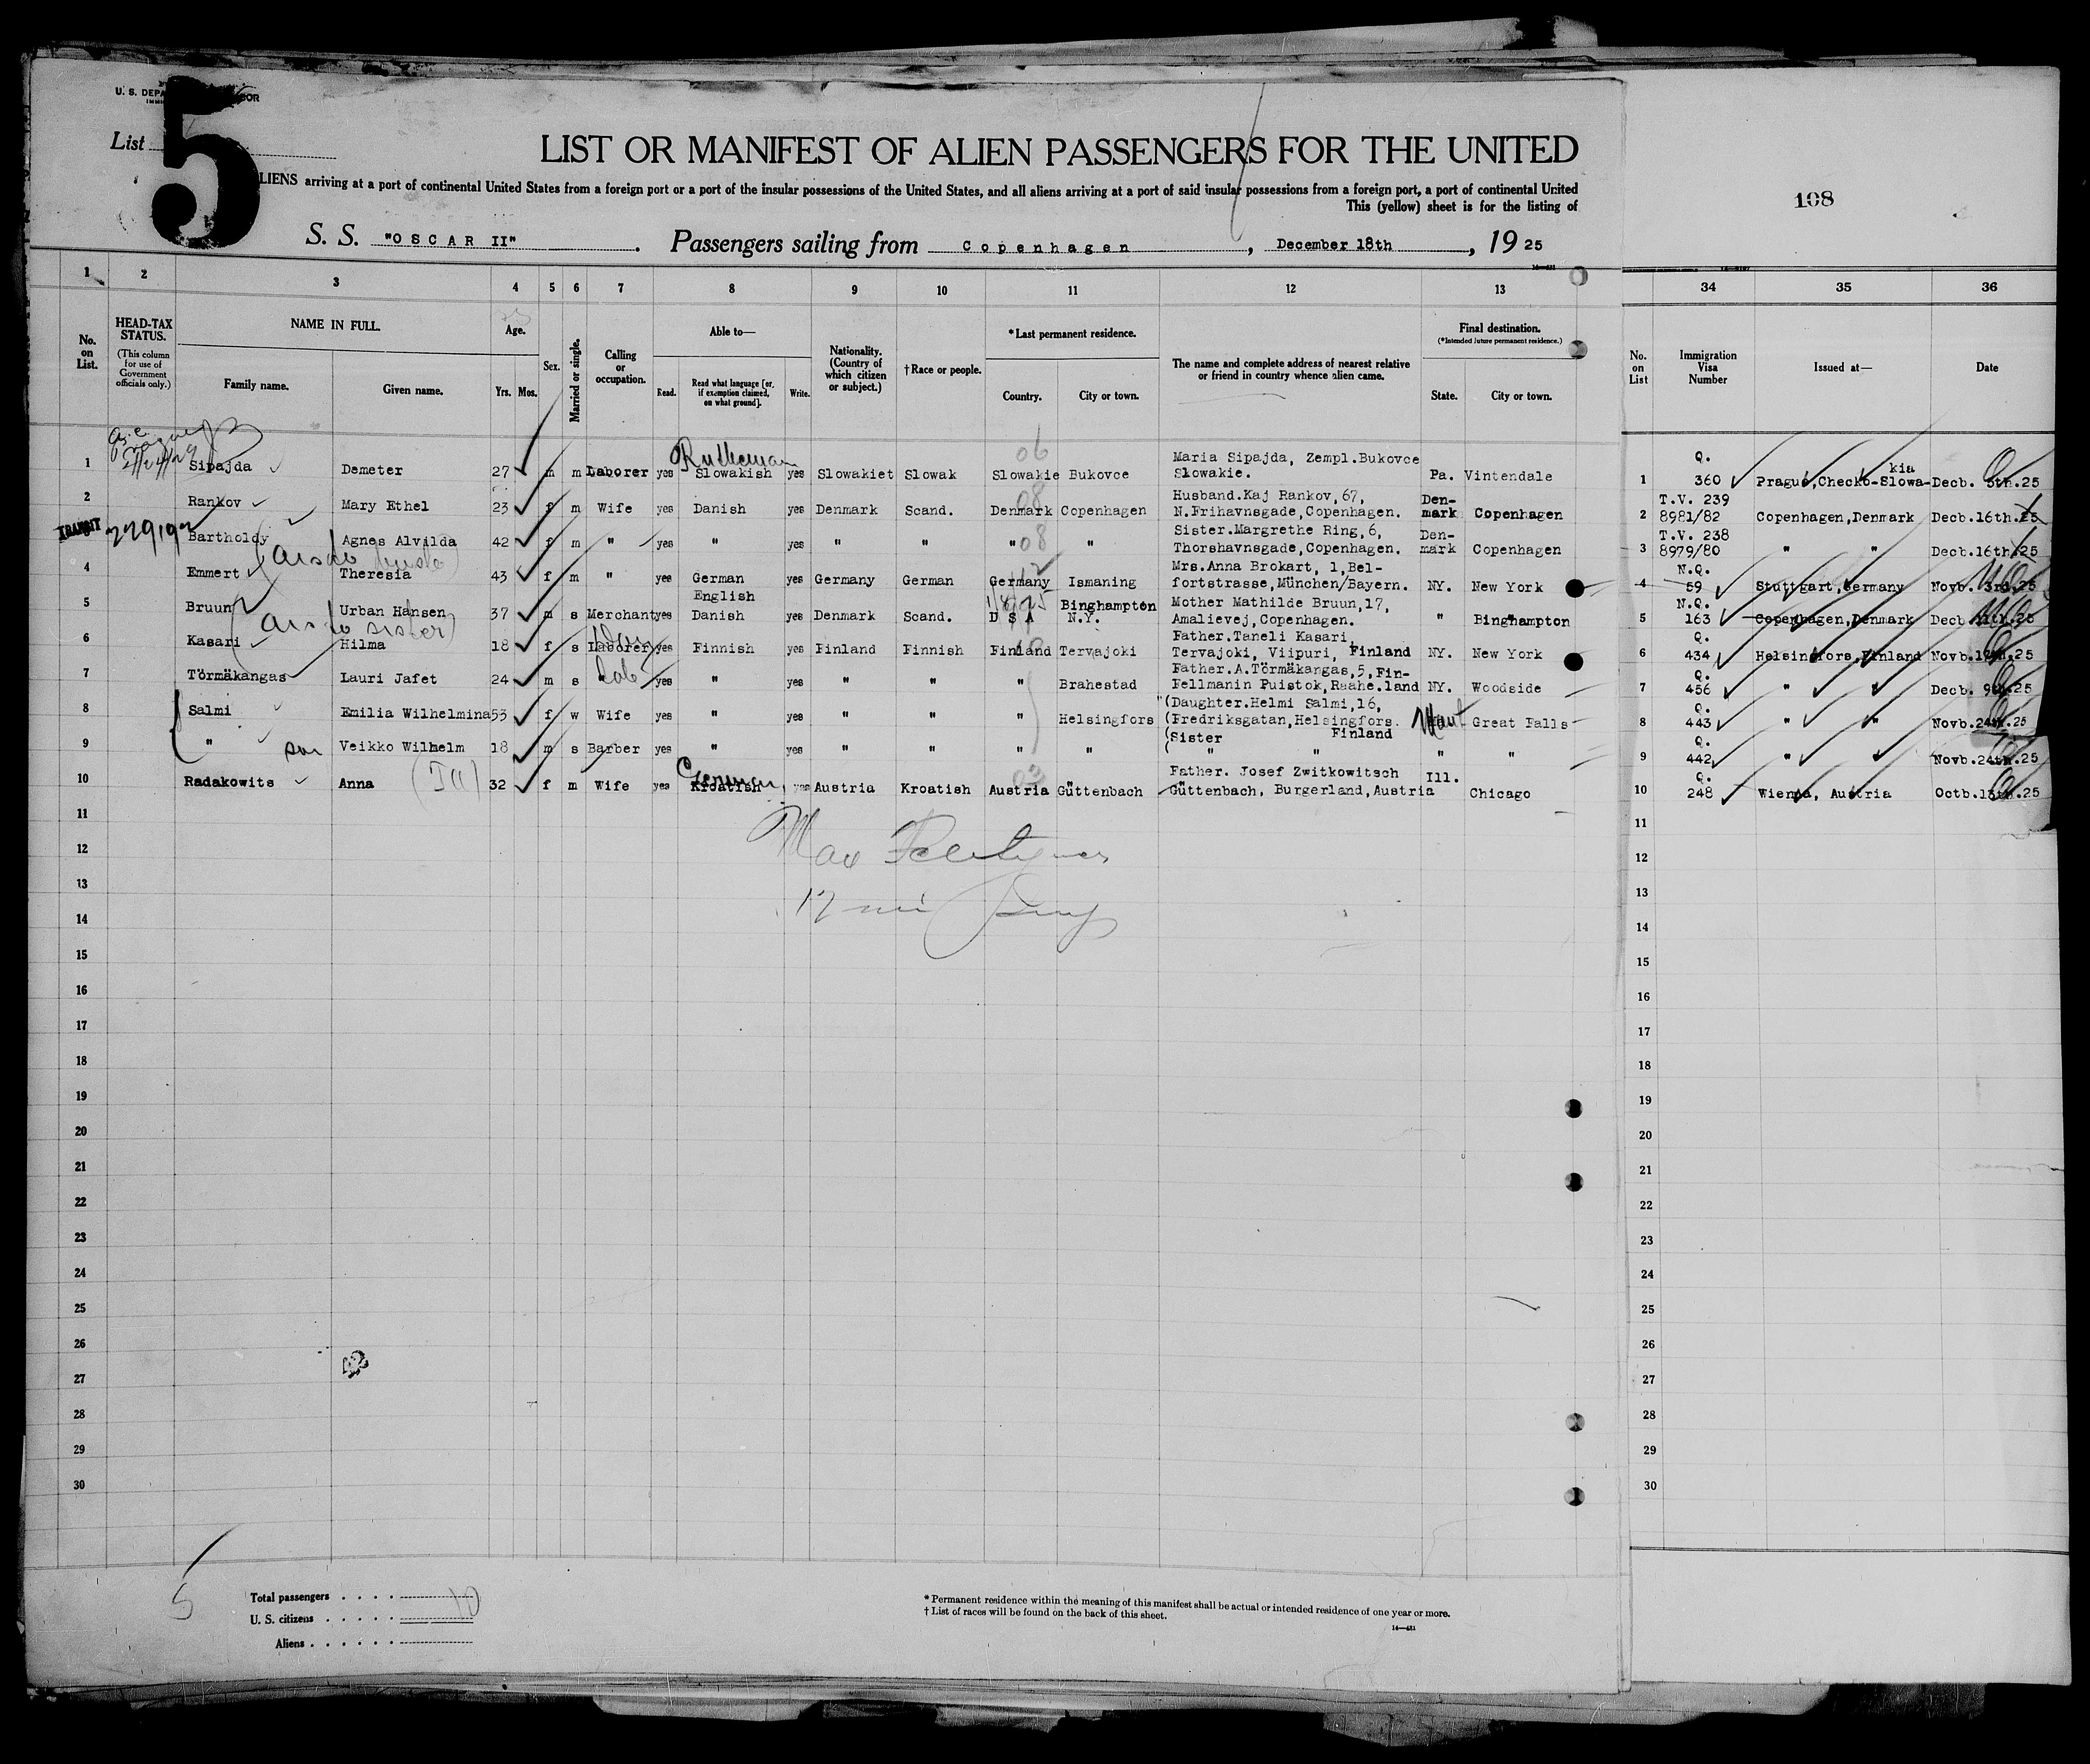 U. S. DEPA
List
5
LIST OR MANIFEST OF ALIEN PASSENGERS FOR THE UNITED
LIENS arriving at a port of continental United States from a foreign port or a port of the insular possessions of the United States, and all aliens arriving at a port of said insular possessions from a foreign port, a port of continental United
This (yellow) sheet is for the listing of
108
S. S. "OSCAR II". Passengers sailing from Copenhagen, December 18th, 1925
1 2 3 4 5 6 7 8 9 10 11 12 13 34 35 36
No. on List.
HEAD-TAX STATUS.
(This column for use of Government officials only.)
NAME IN FULL.
Family name. Given name.
Age.
Yrs. Mos.
Sex.
Married or single.
Calling or occupation.
Able to—
Read. Read what language [or, if exemption claimed, on what ground]. Write.
Nationality. (Country of which citizen or subject.)
†Race or people.
*Last permanent residence.
Country. City or town.
The name and complete address of nearest relative or friend in country whence alien came.
Final destination.
(*Intended future permanent residence.)
State. City or town.
No. on List
Immigration Visa Number
Issued at—
Date
1 Sipajda Demeter 27 m m Laborer yes Ruthenian Slowakish yes Slowakiet Slowak 06 Slowakie Bukovce Maria Sipajda, Zempl.Bukovce Slowakie. Pa. Vintendale 1 Q. 360 Prague,Checko-Slowakia Decb. 5th.25
2 Rankov Mary Ethel 23 f m Wife yes Danish yes Denmark Scand. 08 Denmark Copenhagen Husband.Kaj Rankov,67, N.Frihavnsgade,Copenhagen. Denmark Copenhagen 2 T.V. 239 8981/82 Copenhagen,Denmark Decb.16th.25
TRANSIT
3 Bartholdy Agnes Alvilda 42 f m " yes " yes " " " 08 " Sister.Margrethe Ring,6, Thorshavnsgade,Copenhagen. Denmark Copenhagen 3 T.V. 238 8979/80 " " Decb.16th.25
4 Emmert Theresia 43 f m " yes German yes Germany German Germany Ismaning Mrs.Anna Brokart, 1,Belfortstrasse,München/Bayern. NY. New York 4 N.Q. 59 Stuttgart,Germany Novb. 3rd.25
5 Bruun Urban Hansen 37 m s Merchant yes English Danish yes Denmark Scand. U S A Binghampton N.Y. Mother Mathilde Bruun,17, Amalievej,Copenhagen. " Binghampton 5 N.Q. 163 Copenhagen,Denmark Decb.11th.25
6 Kasari Hilma 18 f s Laborer yes Finnish yes Finland Finnish Finland Tervajoki Father.Taneli Kasari, Tervajoki, Viipuri, Finland NY. New York 6 Q. 434 Helsingfors,Finland
7 Törmäkangas Lauri Jafet 24 m s Lab yes " yes " " " Brahestad Father.A.Törmäkangas,5,Fin- Fellmanin Puistok,Raahe.land NY. Woodside 7 Q. 456 " " Decb. 9th.25
8 Salmi Emilia Wilhelmina 53 f w Wife yes " yes " " " Helsingfors (Daughter.Helmi Salmi,16, (Fredriksgatan,Helsingfors. Finland Great Falls 8 Q. 443 " " Novb.24th.25
9 " son Veikko Wilhelm 18 m s Barber yes " yes " " " " (Sister " " " " 9 Q. 442 " " Novb.24th.25
10 Radakowits Anna (Ill) 32 f m Wife yes German Kroatish yes Austria Kroatish Austria Güttenbach Father. Josef Zwitkowitsch Güttenbach, Burgerland,Austria Ill. Chicago 10 Q. 248 Wienna, Austria Octb.13th.25
11 11
12 12
13 13
14 14
15 15
16 16
17 17
18 18
19 19
20 20
21 21
22 22
23 23
24 24
25 25
26 26
27 27
28 28
29 29
30 30
5
Total passengers . . . . 10
U. S. citizens . . . . .
Aliens . . . . . .
* Permanent residence within the meaning of this manifest shall be actual or intended residence of one year or more.
† List of races will be found on the back of this sheet.
14—431